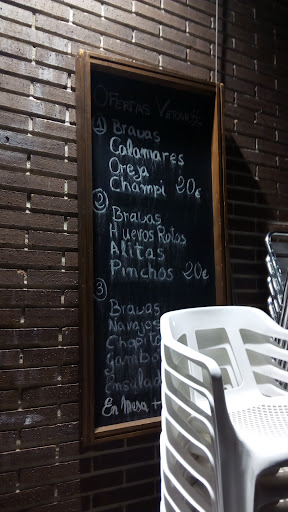 OFERTAS VERANO
① Bravas
Calamares
Oreja
Champi 20€
② Bravas
Huevos Rotos
Alitas
Pinchos 20€
③ Bravas
Navajas
Chopito
Gambo
Ensalad
En Mesa +